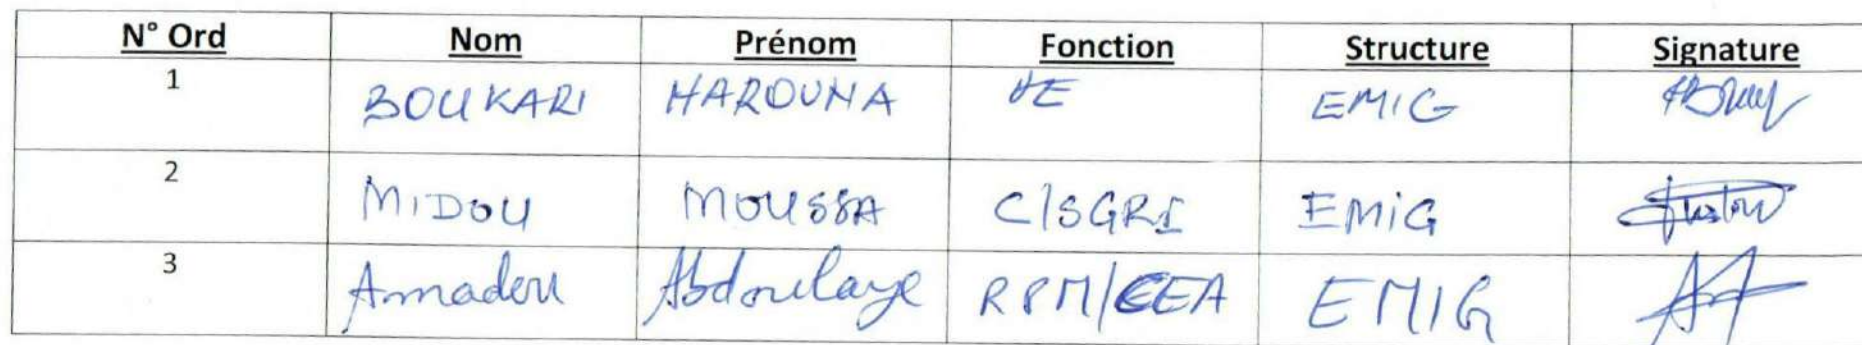 N° Ord Nom Prénom Fonction Structure Signature
1 BOUKARI HAROUNA DE EMIG
2 MIDOU MOUSSA C/SGRI EMiG
3 Amadou Abdoulaye RPM/CEA EMIG